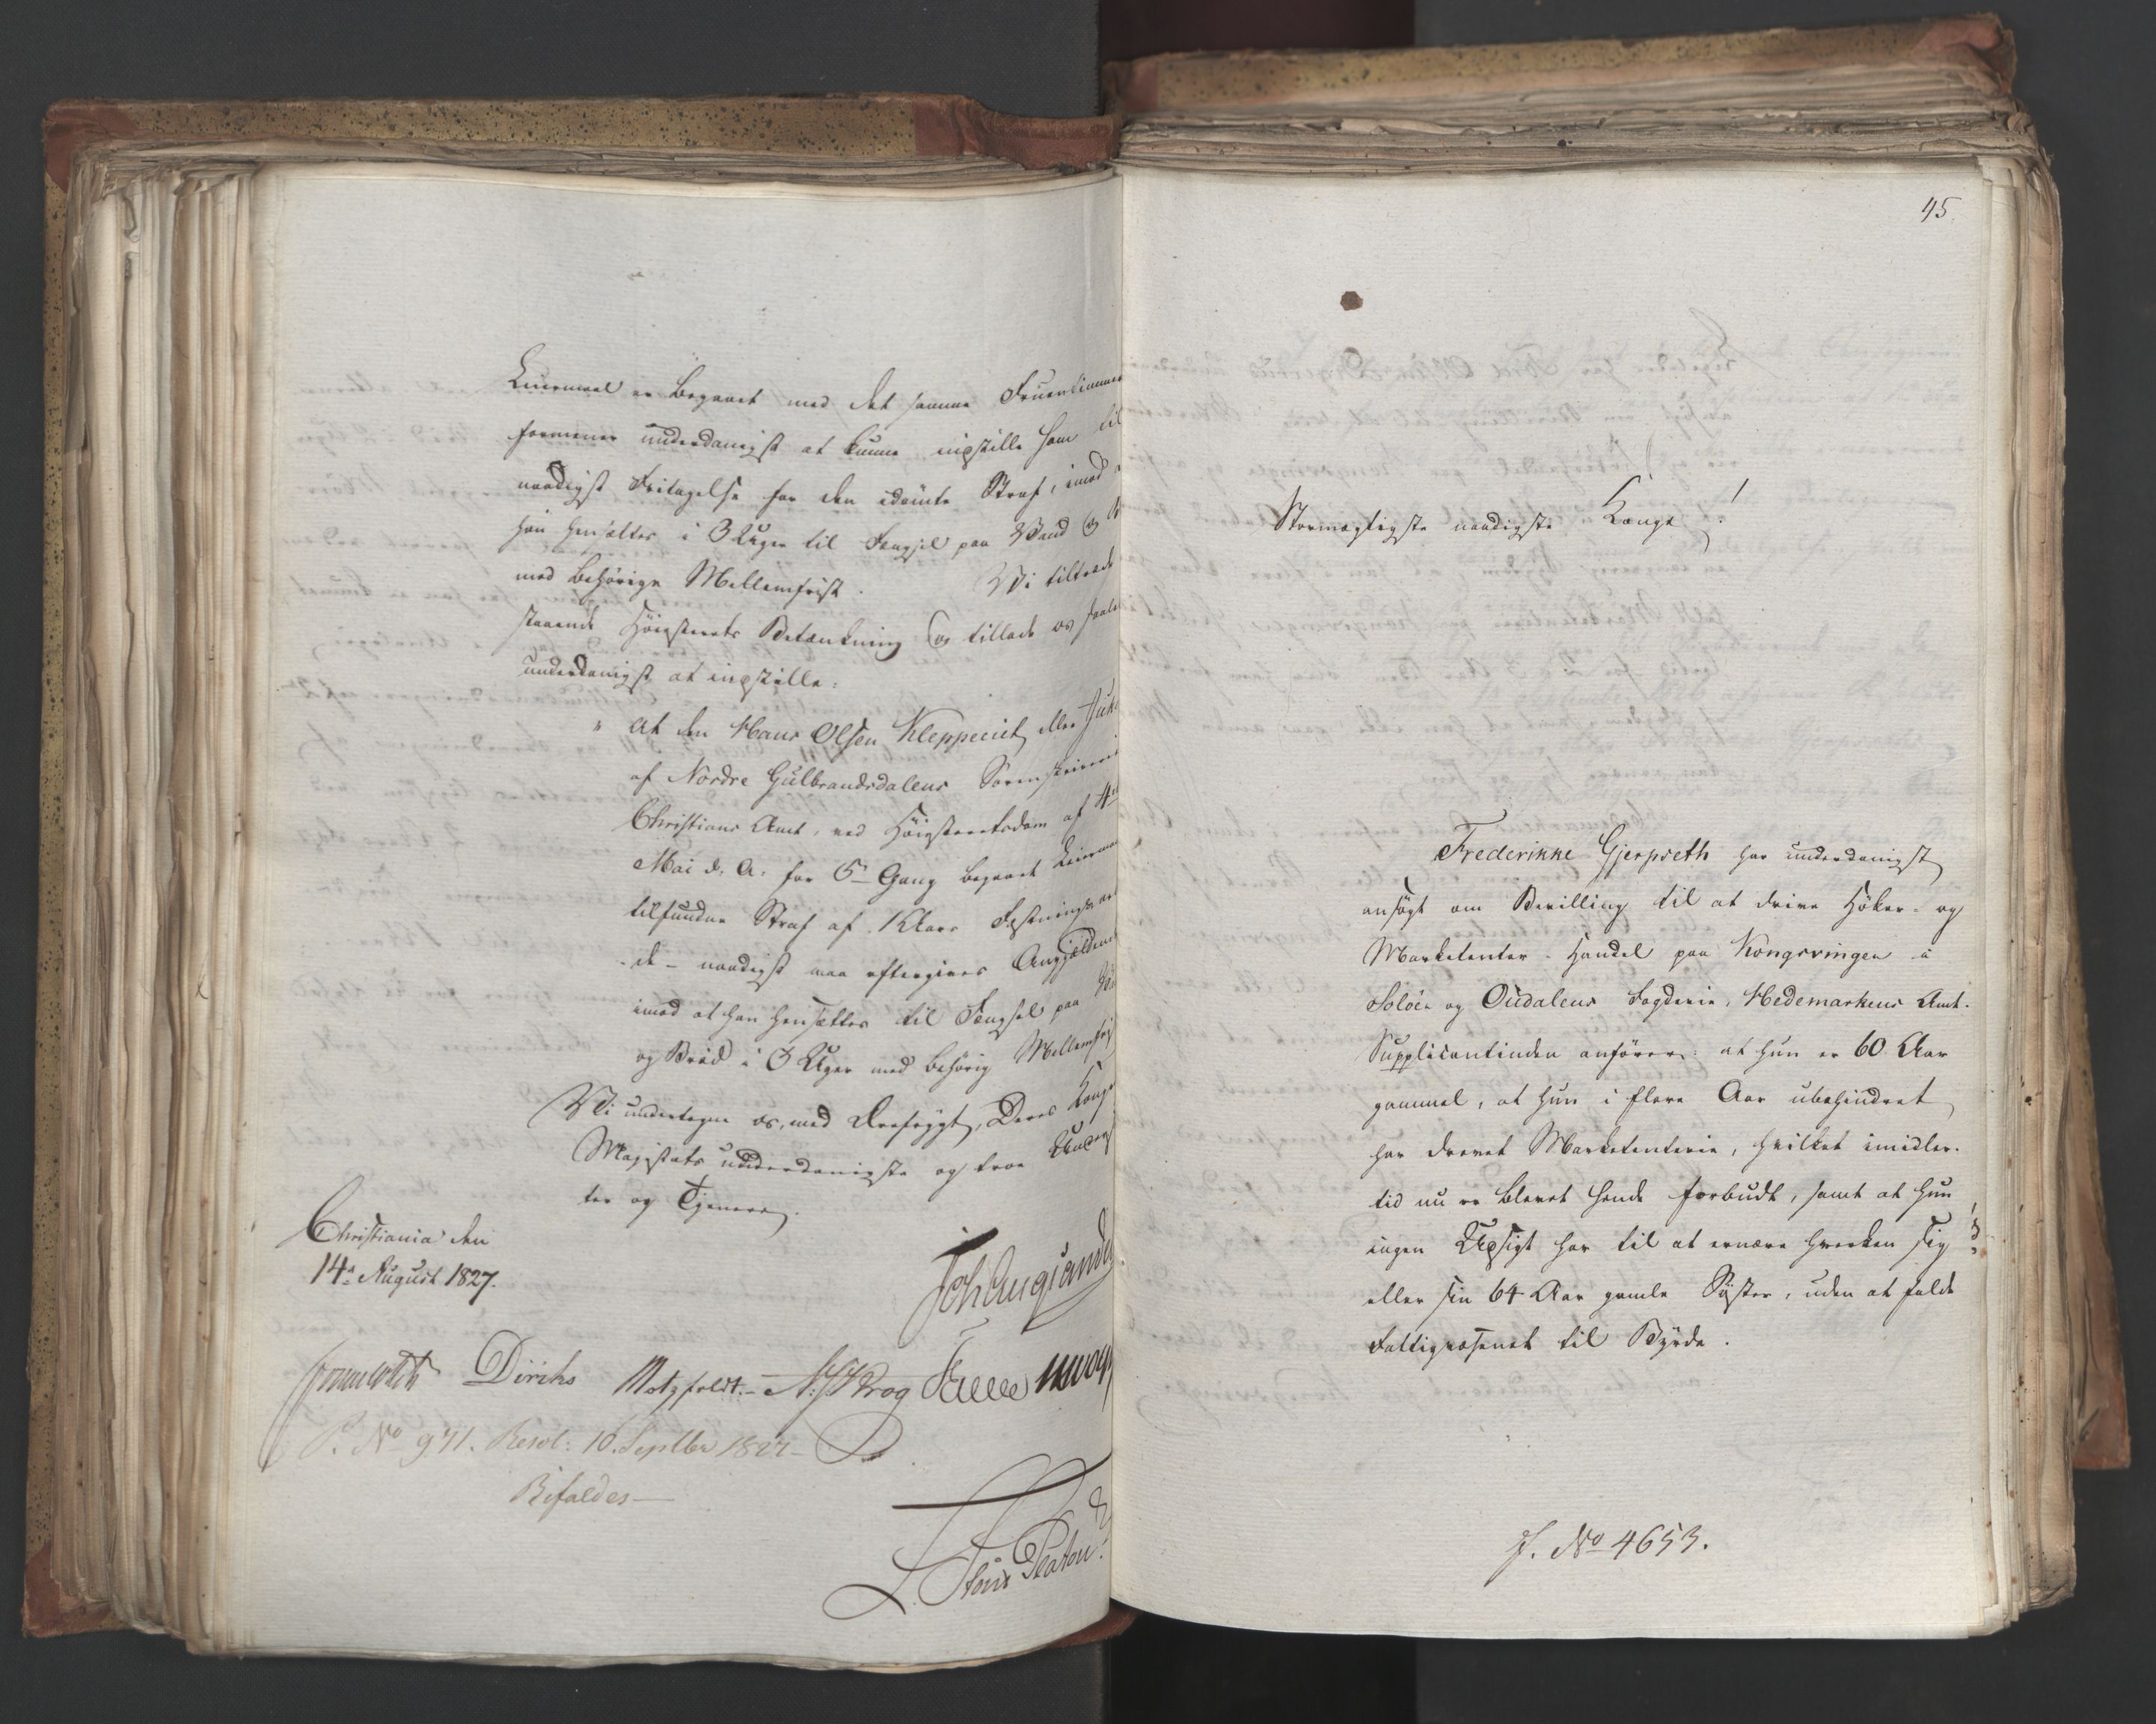 Leiermaal er begaaet med det samme Fruentimmer
formener underdanigst at kunne indstille ham til
naadigst Fritagelse for den idömte Straf, imod a
han hensættes i 3 Uger til Fængsel paa Vand og B
med behörige Mellemfrist. Vi tiltræde
staaende Höiesterets Betænkning og tillade os saale
underdanigst at indstille:
" at den Hans Olsen Kleppeeiet eller
af Nordre Gulbrandsdalens Sorenskriveri
Christians Amt, ved Höiesteretsdom af 4de
Mai d. A. for 5te Gang begaaet Leierma
tilfundne Straf af 1 Aars Fæstningsar
de – naadigst maa eftergives Angjeldende
imod at han hensættes til Fængsel paa
og Bröd i 3 Uger med behörig Mellemfrist
Vi undertegne os, med Ærefrygt, Deres Konge
Majestæts underdanigste og troe Under
ter og Tjenere.
Christiania den
14de August 1827.
Diriks Motzfeldt. Krog
P. No 971. Resol: 10. Septbr 1827 –
Bifaldes –
45.
Stormægtigste naadigste Konge!
Frederikke Gjerpseth har underdanigst
ansögt om Bevilling til at drive Höker- og
Marketenter-Handel paa Kongsvinger i
Solöer og Oudalens Fogderie, Hedemarkens Amt.
Supplicantinden anförer: at hun er 60 Aar
gammel, at hun i flere Aar ubehindret
har drevet Marketenterie, hvilket imidler-
tid nu er blevet hende forbudt, samt at hun
ingen Udsigt har til at ernære hverken sig
eller sin 64 Aar gamle Söster, uden at falde
Fattigvæsenet til Byrde.
J. No 4653.